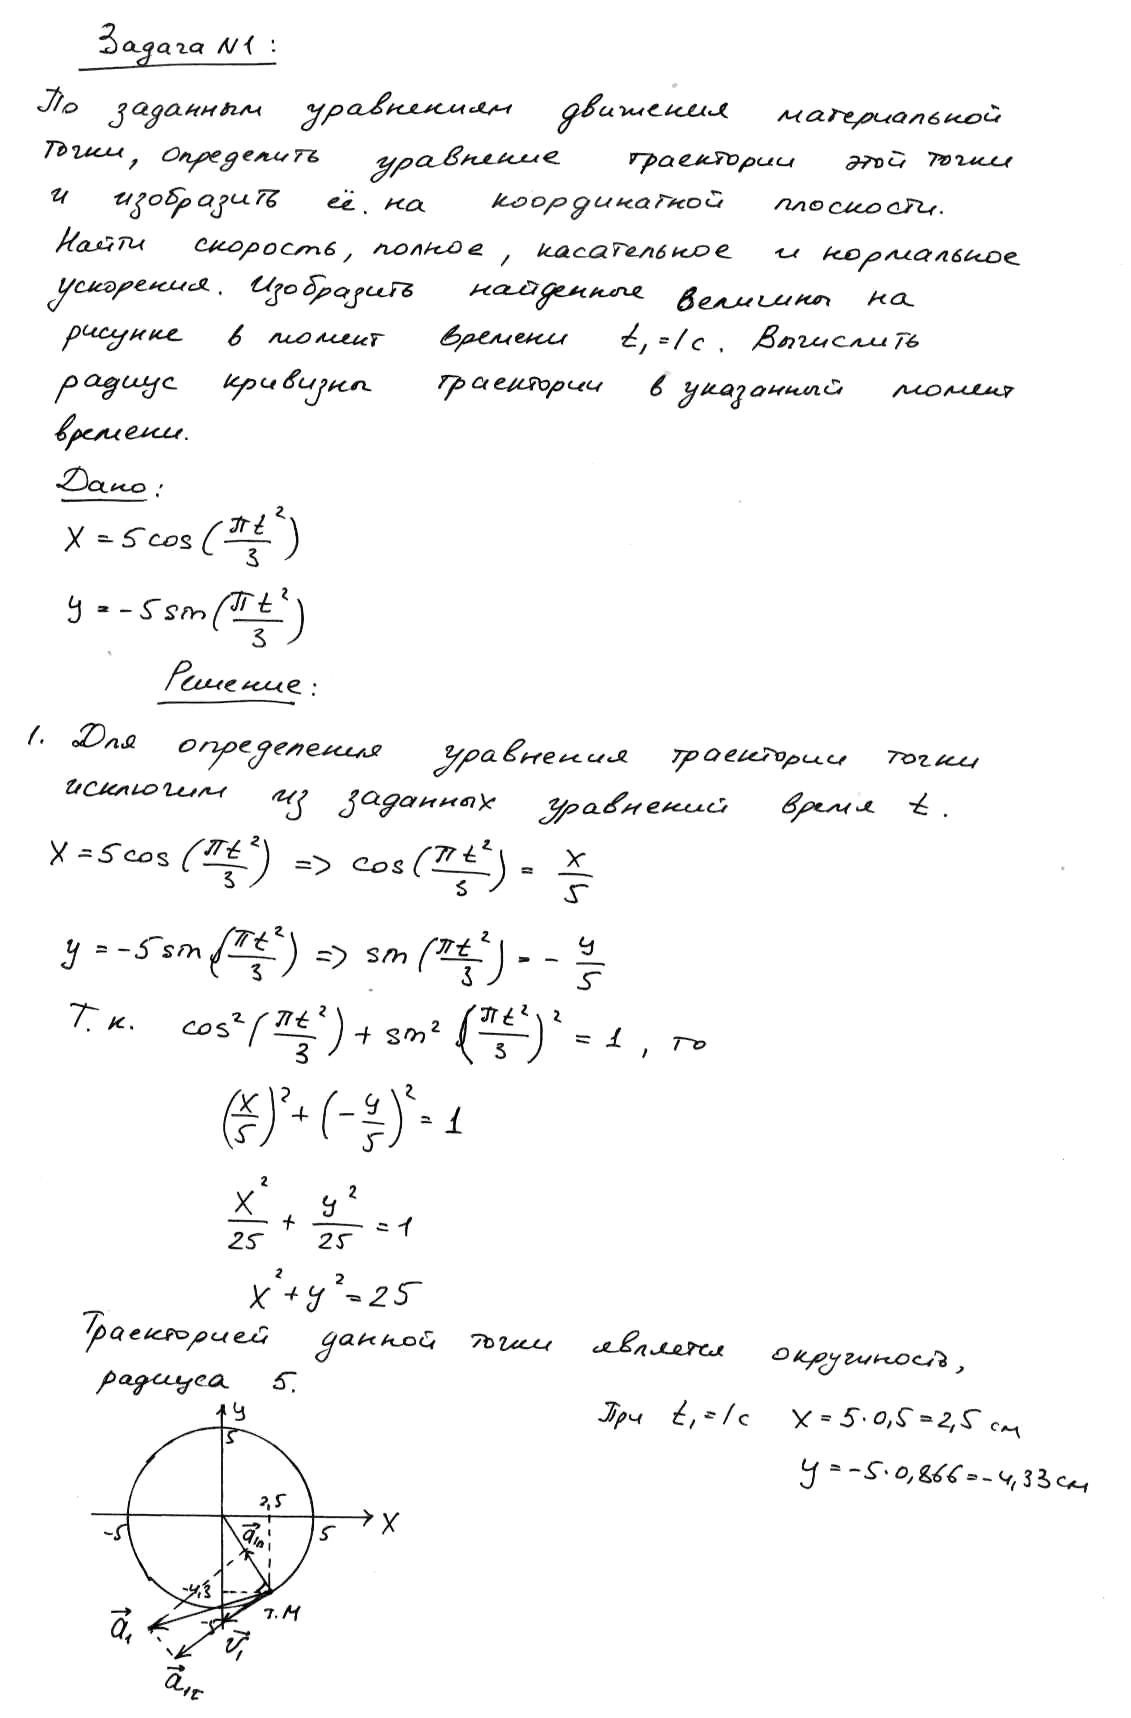 Задача N1:
По заданным уравнениям движения материальной
точки, определить уравнение траектории этой точки
и изобразить её на координатной плоскости.
Найти скорость, полное, касательное и нормальное
ускорения. Изобразить найденные величины на
рисунке в момент времени t₁=1с. Вычислить
радиус кривизны траектории в указанный момент
времени.
Дано:
X = 5 cos(πt²/3)
y = -5 sin(πt²/3)
Решение:
1. Для определения уравнения траектории точки
исключим из заданных уравнений время t.
X = 5 cos(πt²/3) => cos(πt²/3) = x/5
y = -5 sin(πt²/3) => sin(πt²/3) = - y/5
Т.к. cos²(πt²/3) + sin²(πt²/3)² = 1, то
(x/5)² + (-y/5)² = 1
x²/25 + y²/25 = 1
x² + y² = 25
Траекторией данной точки является окружность,
радиуса 5.
При t₁=1с X = 5·0,5 = 2,5 см
y = -5·0,866 = -4,33 см
y
5
2,5
-5
5
X
a⃗₁ₙ
-4,3
т.М
-5
a⃗₁
v⃗₁
a⃗₁τ